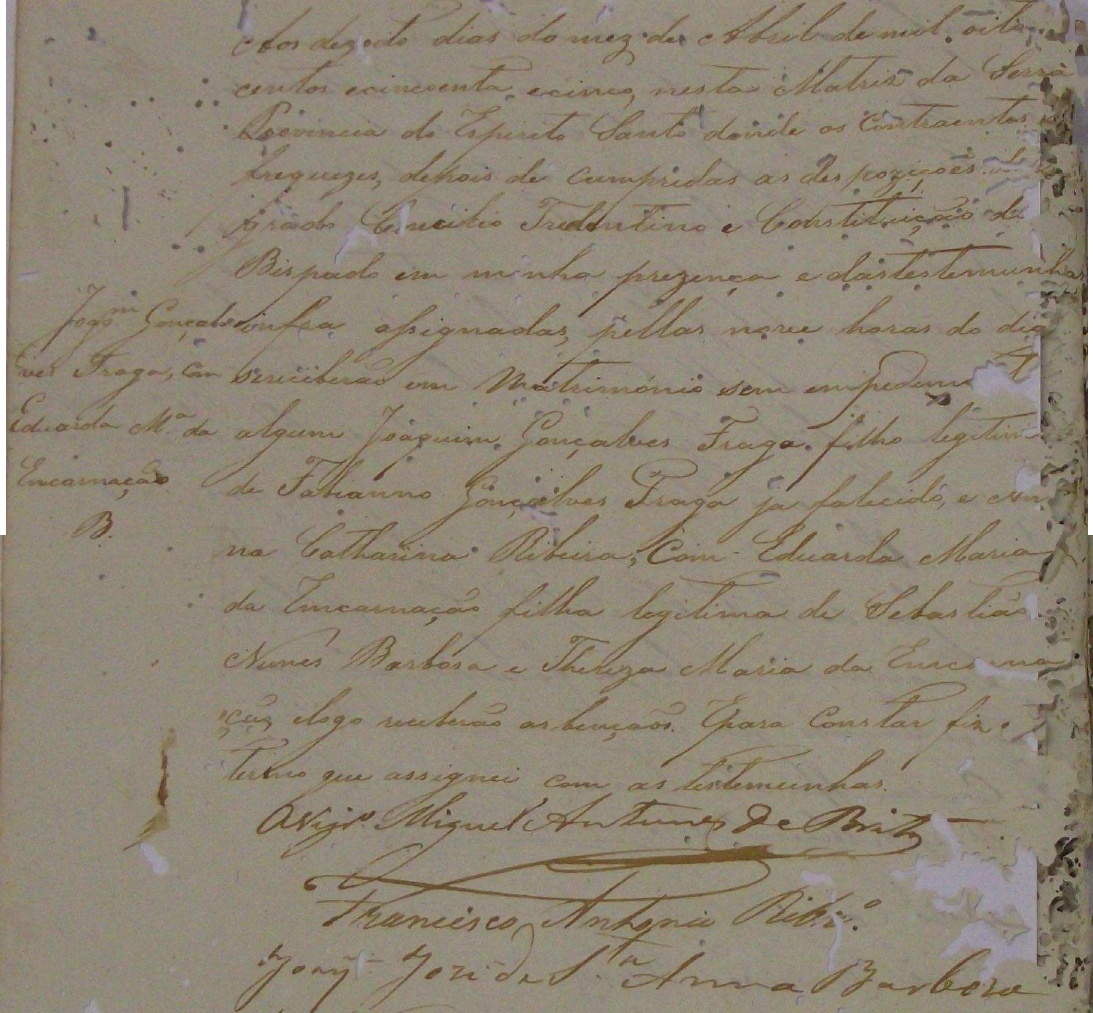 Aos dezoito dias do mez de Abril de mil oito
centos ecincoenta ecinco, nesta Matriz da Serra
Provincia do Espirito Santo donde os Contraentes
freguezes, depois de cumpridas as despozições do
grado Concilio Tredentino e Constituição do
Bispado em minha prezença e dastestemunhas
Joaqm Gonçalves infra assignadas, pellas nove horas do dia
Fraga, com sereceberão em Matrimonio sem empedimto
Eduarda Mª da algum Joaquim Gonçalves Fraga filho legitimo
Encarnação de Fabianno Gonçalves Fraga ja falecido, e
B. na Catharina Ribeira, Com Eduarda Maria
da Emcarnação filha legitima de Sebastião
Nunes Barbosa e Thereza Maria da Encarna
ção, elogo receberão asbençaõs. Epara Constar fiz
termo que assignei com as testemunhas.
OVigrº Miguel Antunes de Brito
Francisco Antonio Ribrº
José de Sta Anna Barboza